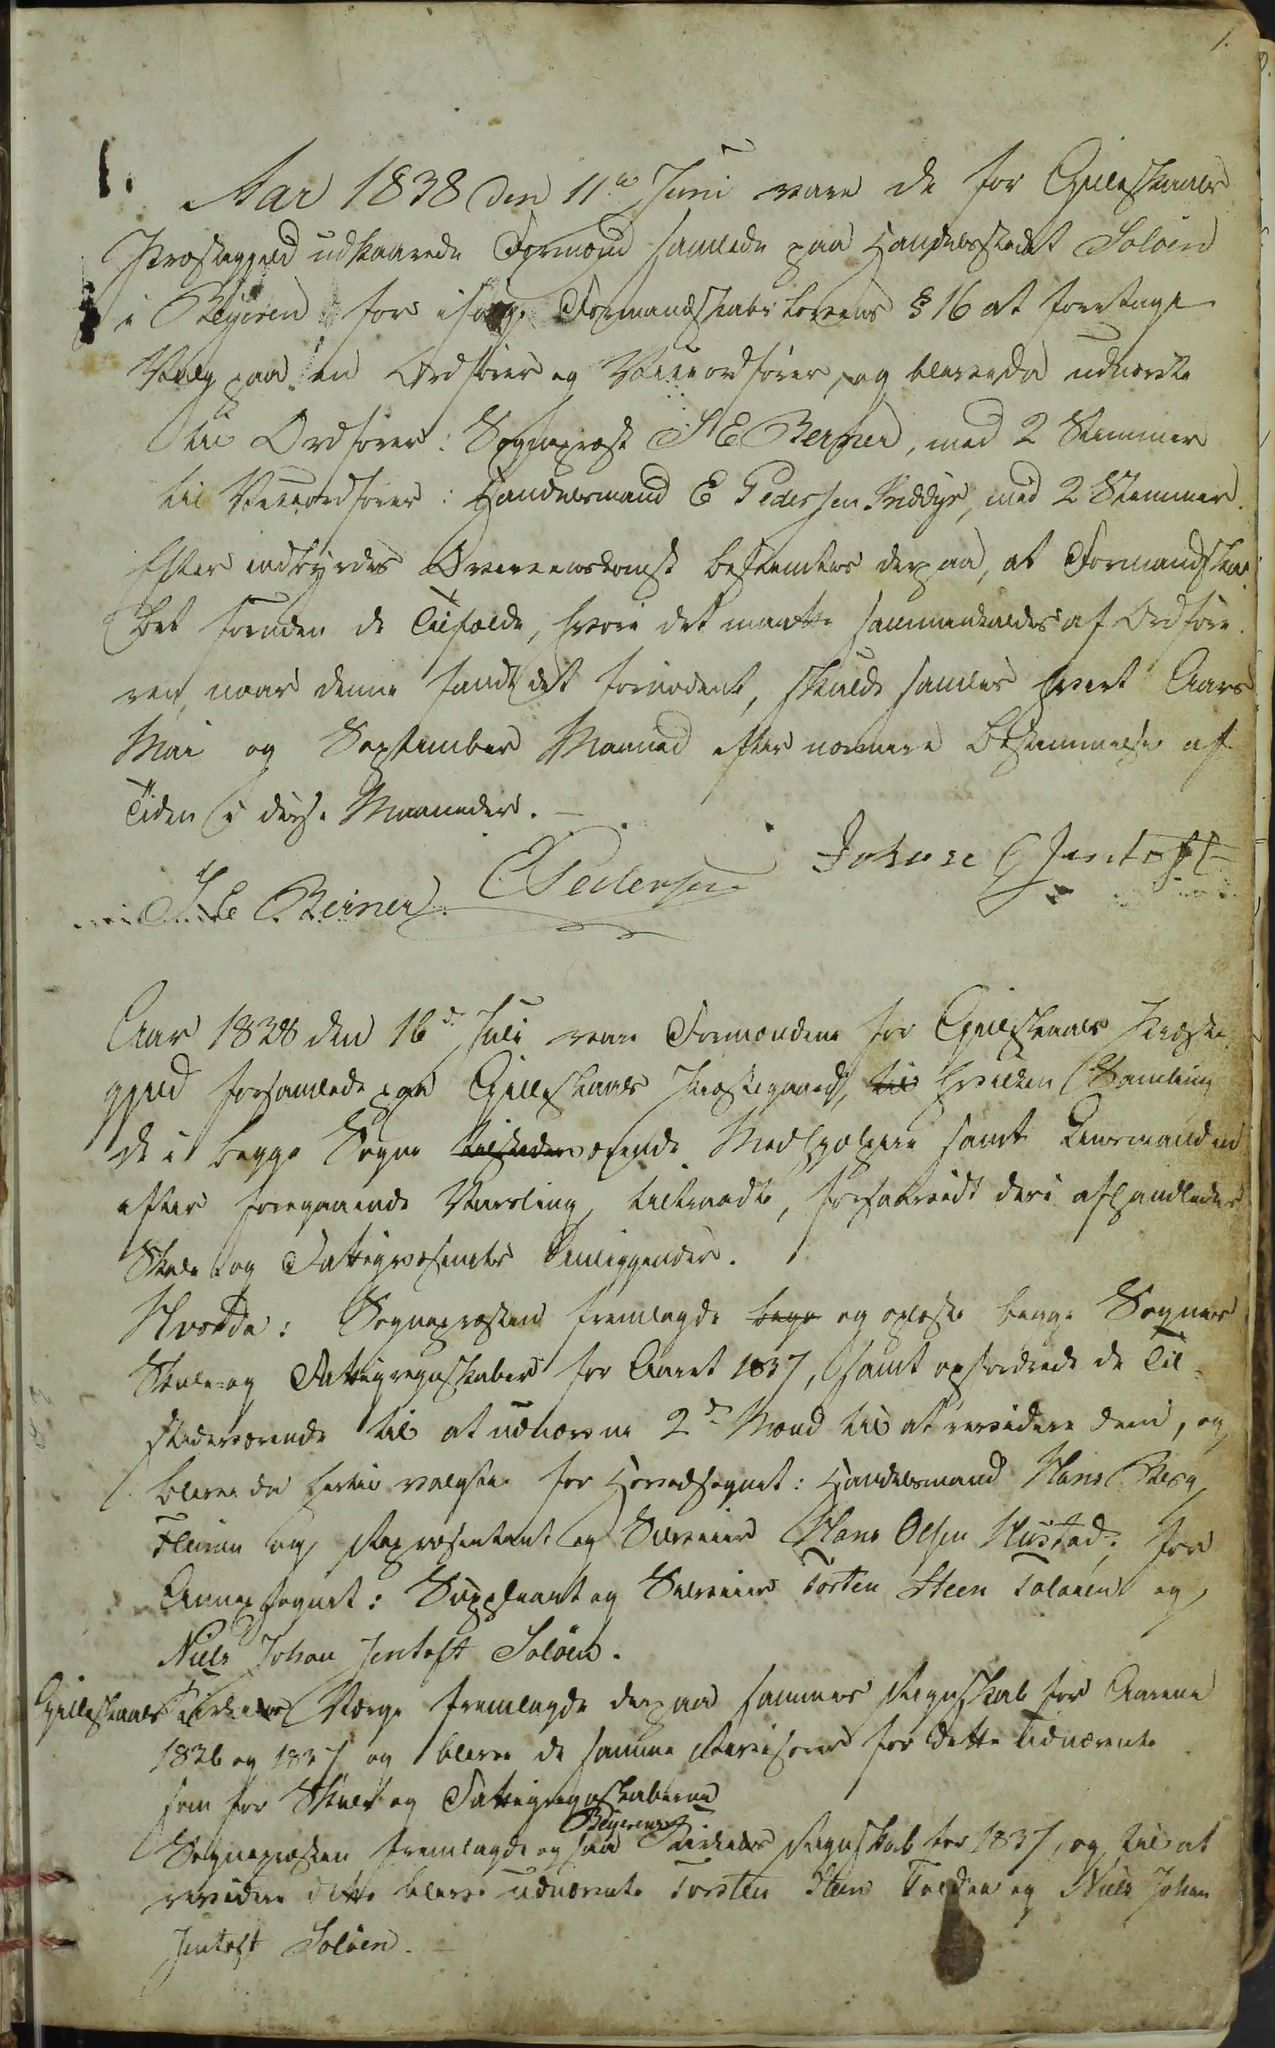 1.
1. Aar 1838 den 11te Juni vare de for Gilleskaals
Præstegjeld udkaarede Formænd samlede paa Handelsstedet Soløen
i Bejeren for ifølge Formandskabs Lovens § 16 at foretage
Valg paa en Ordfører og Viceordfører, og bleve da udnævnte
til Ordfører: Sognepræst J E Berner, med 2 Stemmer
til Viceordfører: Handelsmand E Pedersen Inddyr, med 2 Stemmer.
Efter indbyrdes Overeenskomst bestemtes derpaa, at Formandska-
bet foruden de Tilfælde, hvori det maatte sammenkaldes af Ordføre-
ren, naar denne fandt det fornødent, skulde samles hvert Aars
Mai og September Maaned efter nærmere Bestemmelse af
Tiden i disse Maaneder. -
J E Berner. E Pedersen Johan G Jentoft
Aar 1838 den 16de Juli vare Formændene for Gilleskaals Præste-
gjeld forsamlede paa Gilleskaals Præstegaard, til hvilken Samling
de i begge Sogne tilstedeværende Medhjælpere samt Lensmanden
efter foregaaende Varsling, tiltraadte, forsaavidt deri afhandledes
Skole og Fattigvæsenets Anliggender.
Hvorda: Sognepræsten fremlagde bege og oplæste begge Sognes
Skole- og Fattigregnskaber for Aaret 1837, samt opfordrede de Til-
stedeværende til at udnævne 2de Mænd til at revidere dem, og
bleve da hertil valgte for Hovedsognet: Handelsmand Hans Berg
Fleinen og Repræsentant og Selveier Hans Olsen Mustad; for
Annexsognet: Suppleant og Selveier Torsten Steen Tolaaen og
Niels Johan Jentoft Soløen.
Gilleskaals Kirkes Værge fremlagde derpaa sammes Regnskab for Aarene
1836 og 1837 og bleve de samme Revisorer for dette udnævnte
som for Skole og Fattigregnskaberne
Sognepræsten fremlagde og saa Bejerens Kirkes Regnskab for 1837, og til at
revidere dette bleve udnævnte Torsten Steen og Niels Johan
Jentoft Soløen. -